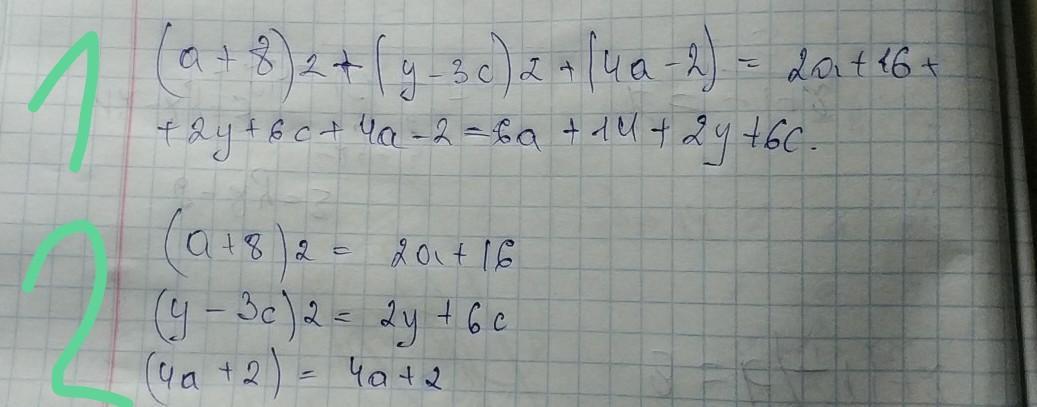 1
(a+8)2+(y-3c)2+(4a-2)=2a+16+
+2y+6c+4a-2=6a+14+2y+6c.
2
(a+8)2=2a+16
(y-3c)2=2y+6c
(4a+2)=4a+2